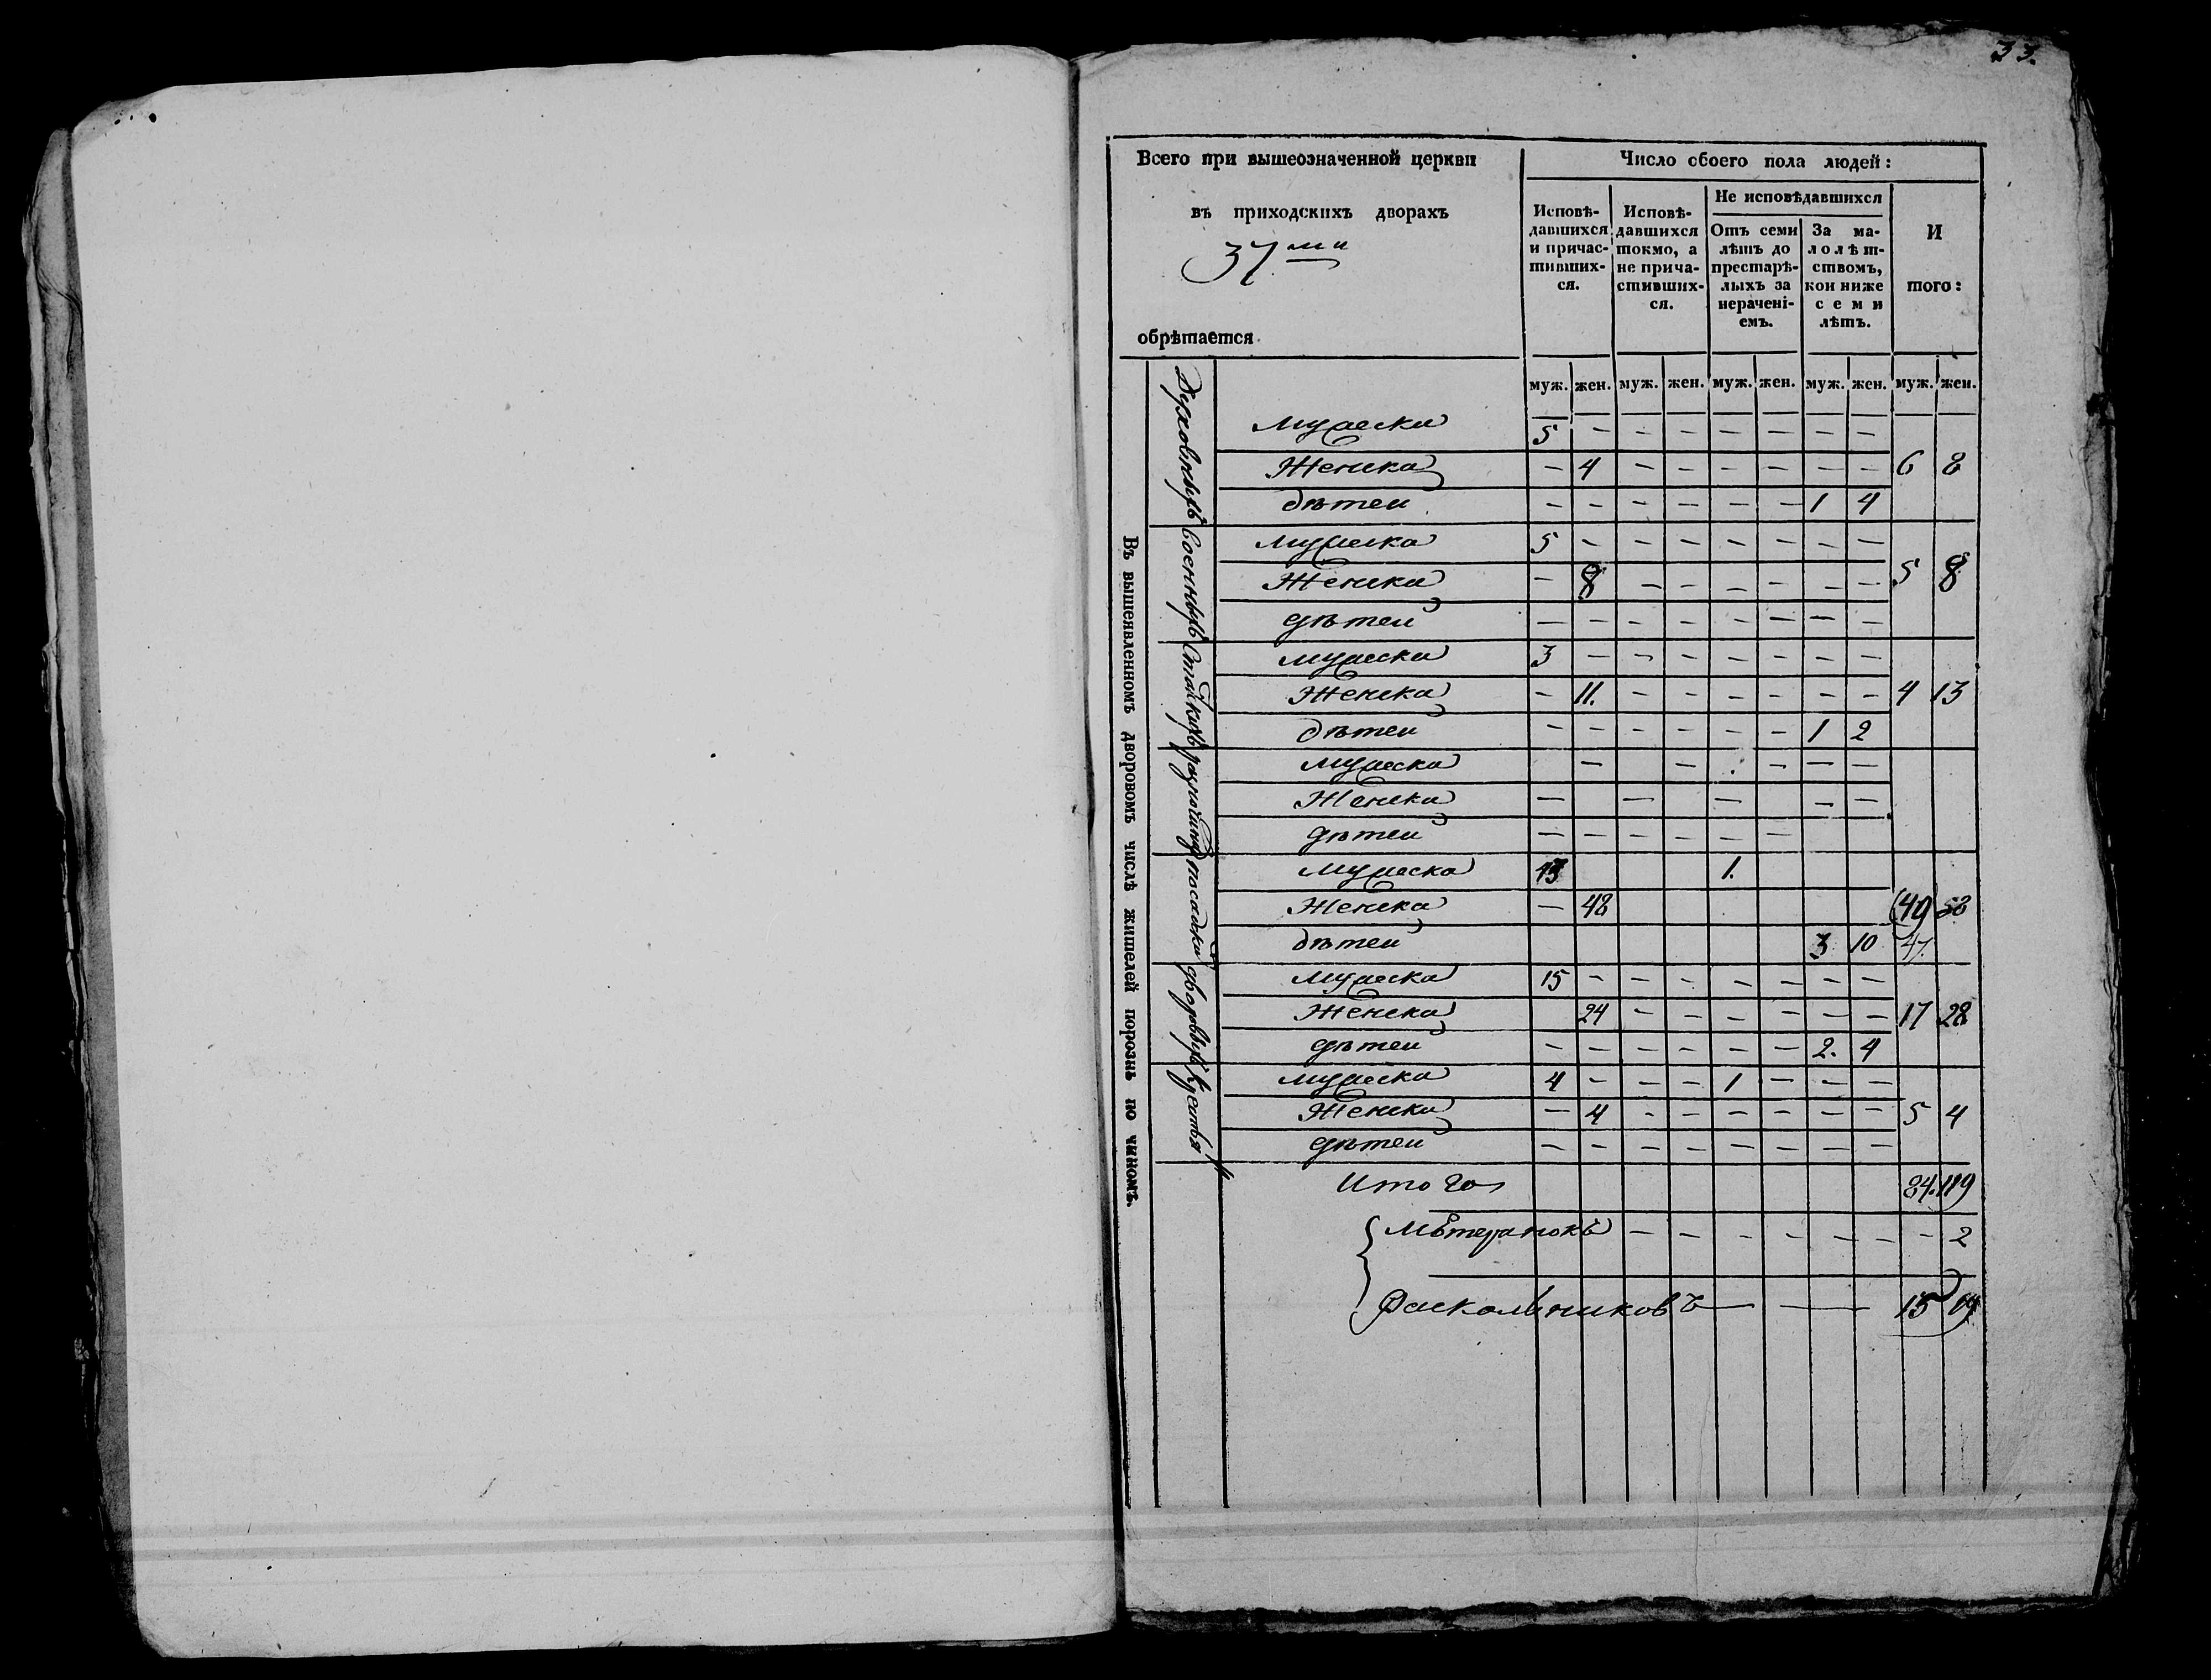 33.
Всего при вышеозначенной церкви
въ приходскихъ дворахъ
37ми
обрѣтается
Число обоего пола людей:
Исповѣ-
давшихся
и причас-
тивших-
ся.
Исповѣ-
давшихся
токмо, а
не прича-
стивших-
ся.
Не исповѣдавшихся
Отъ семи
лѣтъ до
престарѣ-
лыхъ за
нерачені-
емъ.
За ма-
лолѣт-
ствомъ,
кои ниже
семи
лѣтъ.
И
того:
муж. жен. муж. жен. муж. жен. муж. жен. муж. жен.
Въ вышеявленномъ дворовомъ числѣ жителей порознь по чиномъ.
Духовныхъ
Мужеска 5 – – – – – – –
Женска – 4 – – – – – – 6 8
дѣтей – – – – – – 1 4
Военныхъ
Мужеска 5 – – – – – – –
Женска – 8 – – – – – – 5 8
дѣтей – – – – – – – –
Статскихъ
Мужеска 3 – – – – – – –
Женска – 11. – – – – – – 4 13
дѣтей – – – – – – 1 2
разночинц
Мужеска – – – – –
Женска – – – – –
дѣтей – – – – – –
посадски
Мужеска 43 1.
Женска – 48 (49) 58
дѣтей 3 10 47.
дворовыхъ
Мужеска 15 – – – – – – –
Женска 24 – – – – – – 17 28
дѣтей – – – – – – 2. 4
Крестья
Мужеска 4 – – – 1 – – –
Женска – 4 – – – – – – 5 4
дѣтей – – – – – – – –
Итого 84. 119
– – – – – – – 2
Раскольниковъ — — 15 19